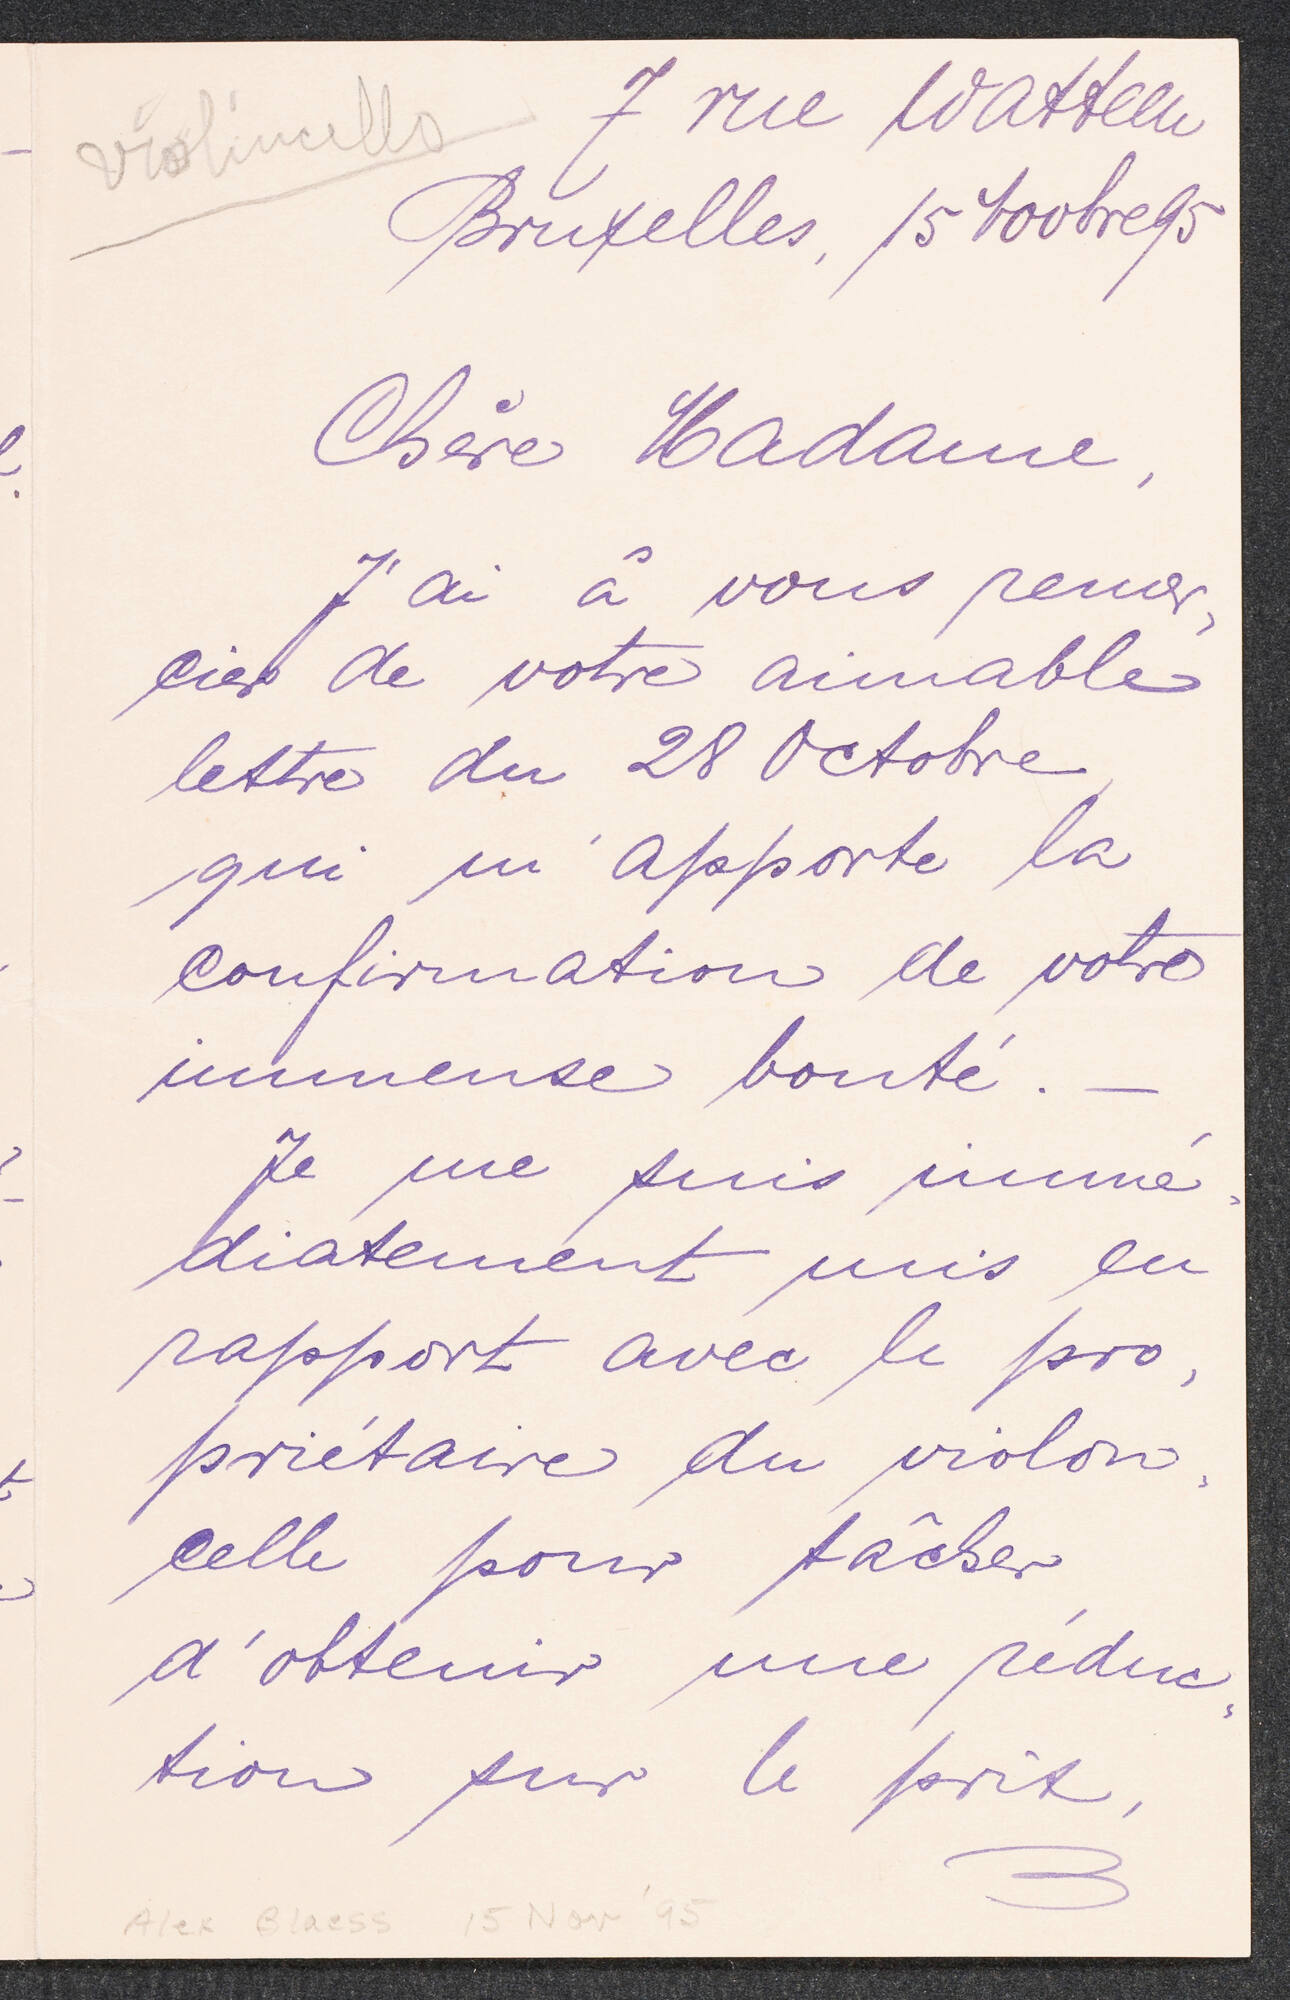 violincello
7 rue Watteeu
Bruxelles, 15 9bre 95
Chère Madame,
J'ai à vous remer,
cier de votre aimable
lettre du 28 Octobre,
qui m'apporte la
confirmation de votre
immense bonté. —
Je me suis immé,
diatement mis en
rapport avec le pro,
priétaire du violon,
celle pour tâcher
d'obtenir une réduc,
tion sur le prix,
Alex Blaess 15 Nov '95